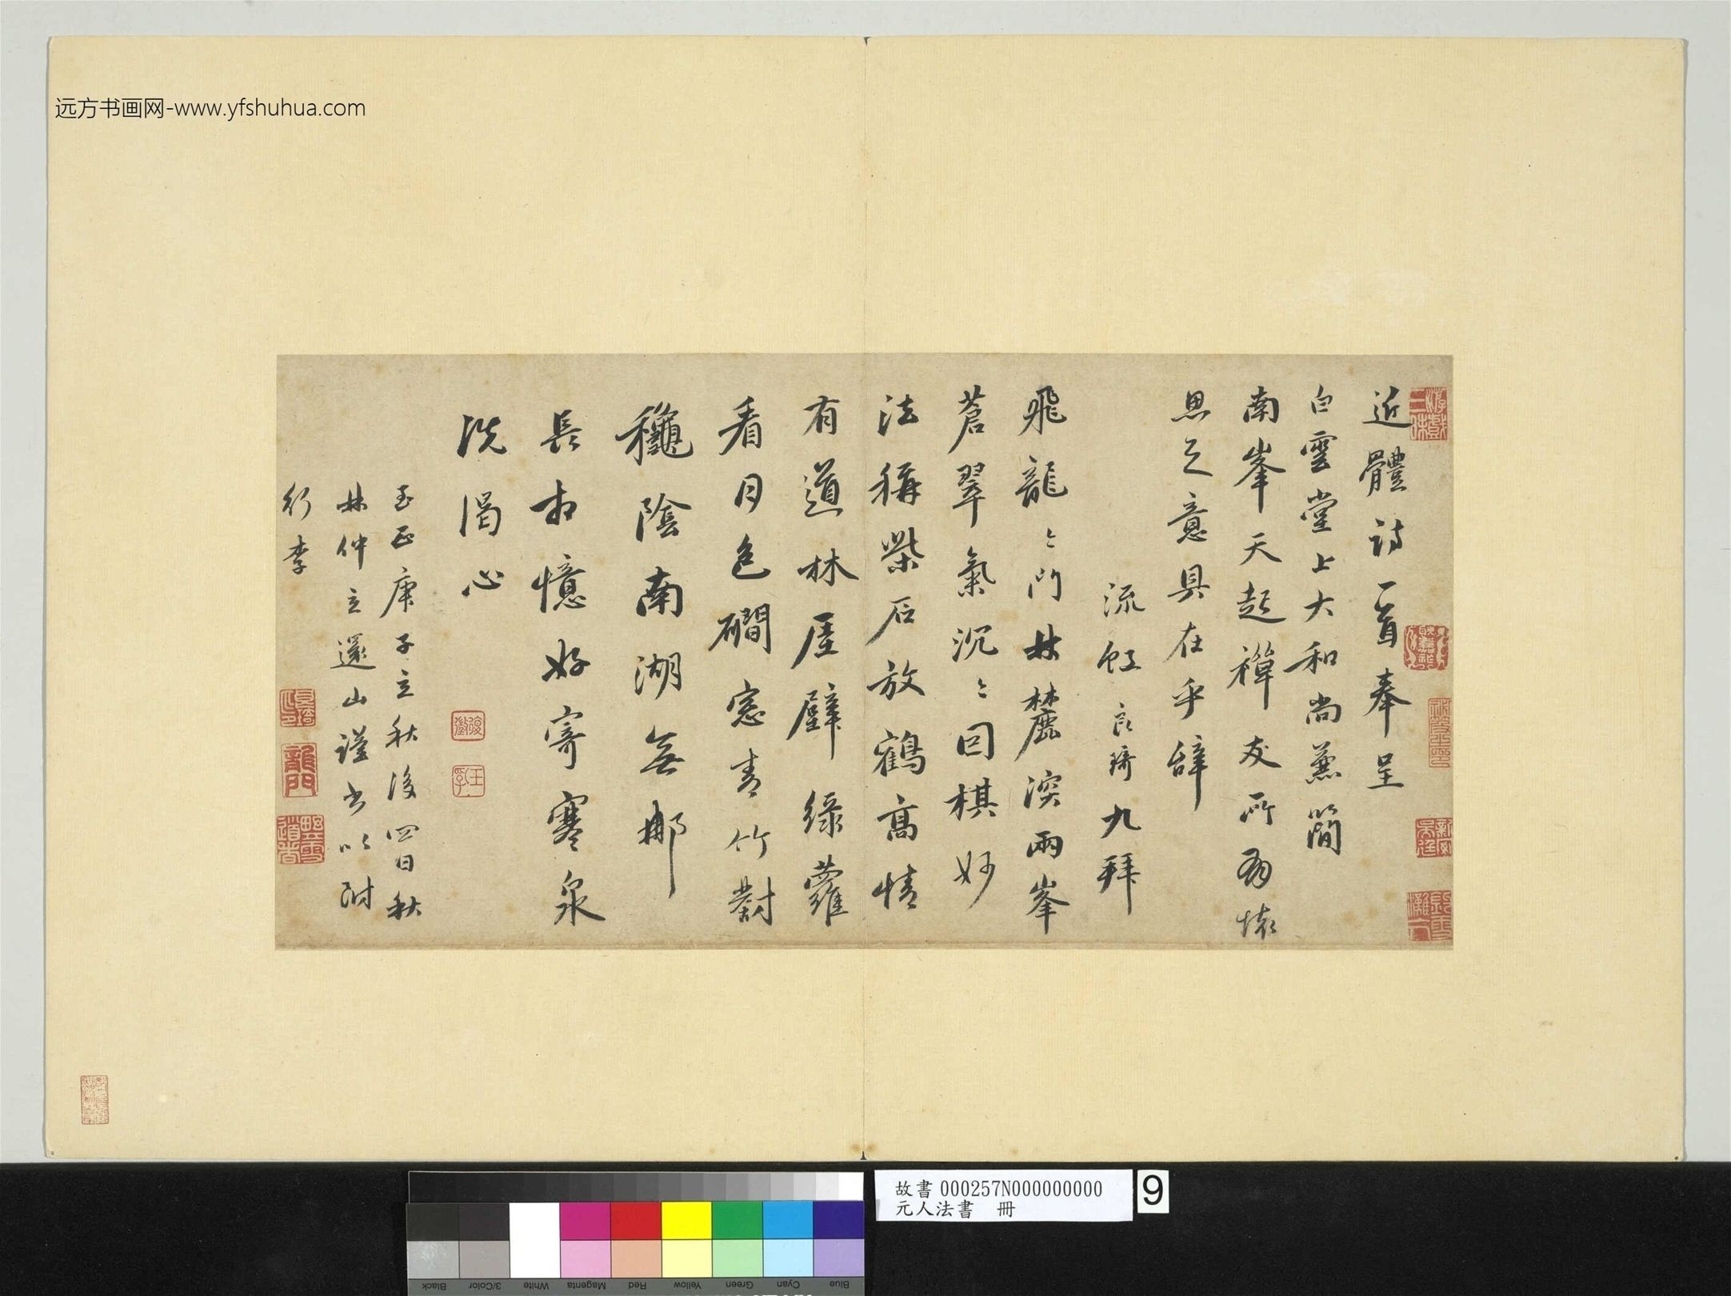 远方书画网-www.yfshuhua.com
近體詩一首奉呈
白雲堂上大和尚兼簡
南峯天起禪友所為懷
思之意具在乎辞
流虹良琦九拜
飛龍〻門林麓深兩峯
蒼翠氣沉〻回棋妙
法稱柴石放鶴高情
有道林屋壁綠蘿
看月色磵窓青竹對
龝陰南湖無那
長相憶好寄寒泉
洗渴心
至正庚子立秋後四日秋
林仲立還山謹書以附
行李
故書 000257N000000000
元人法書 冊
9
Black
3/Color
White
Magenta
Red
Yellow
Green
Cyan
Blue